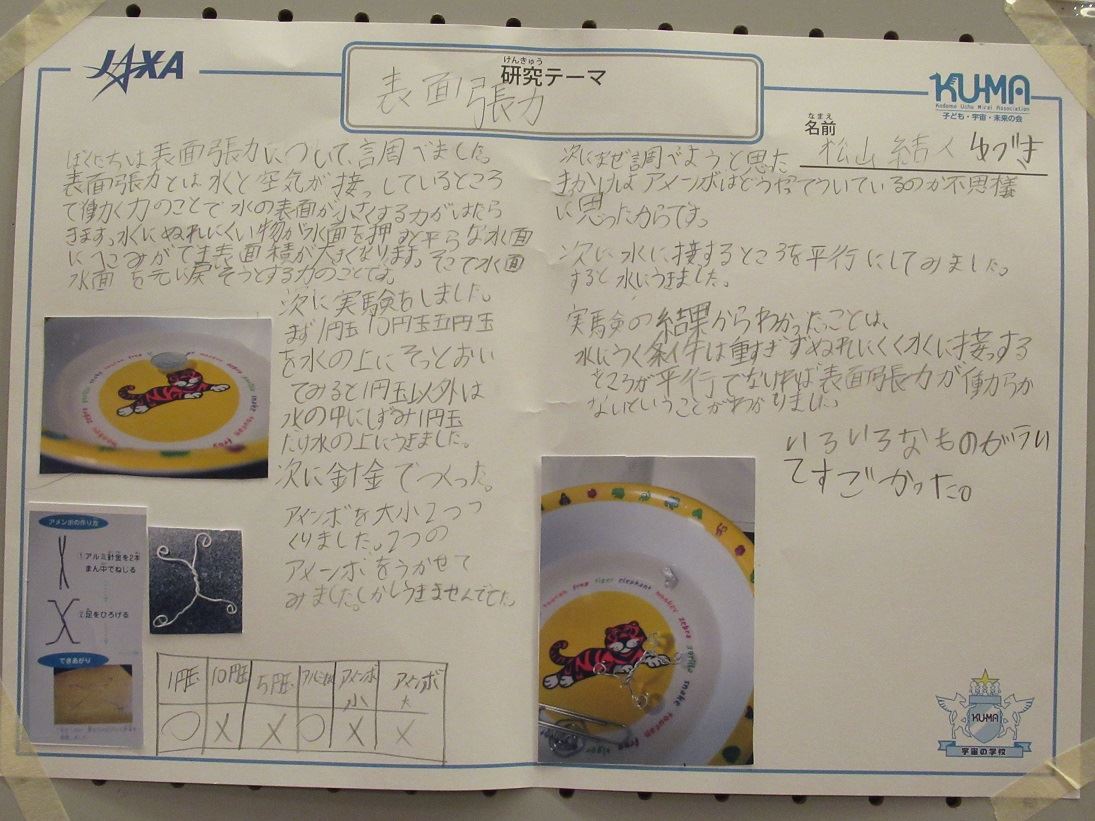 JAXA
けんきゅう
研究テーマ
表面張力
KU-MA
Kodomo Uchu Mirai Association
子ども・宇宙・未来の会
なまえ
名前
松山 結人 ゆづき
ぼくたちは表面張力について、調べました。
表面張力とは水と空気が接っしているところ
で働く力のことで水の表面が小さくする力がはたら
きます。水にぬれにくい物が水面を押すと平らな水面
にへこみができ表面積が大きくなります。そこで水面
水面を元に戻そうとする力のことです。
次に実験をしました。
まず1円玉10円玉五円玉
を水の上にそっとおい
てみると1円玉以外は
水の中にしずみ1円玉
だけ水の上にうきました。
次に針金でつくった。
アメンボを大小2つつ
くりました。2つの
アメンボをうかせて
みました。しかしうきませんでした。
アメンボの作り方
①アルミ針金を2本
まん中でねじる
②足をひろげる
できあがり
1円玉 10円玉 5円玉 アメンボ小 アメンボ大
○ × × ○ × ×
次になぜ調べようと思た
きかけはアメンボはどうやってういているのか不思様
に思ったからです。
次に水に接するところを平行にしてみました。
すると水にうきました。
実験の結果からわかったことは、
水にうく条件は重すぎずぬれにくく水に接っする
ところが平行でなければ表面張力が働らか
ないということがわかりました。
いろいろなものがうい
てすごかった。
toucan frog tiger elephant monkey zebra gorilla snake
KU-MA
宇宙の学校